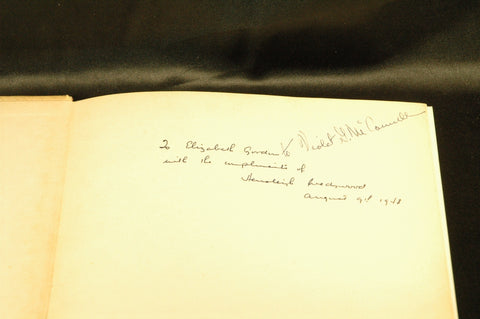 To Elizabeth Gordon Violet L. McConnell
with the compliments of
Hensleigh Wedgwood
August 9th